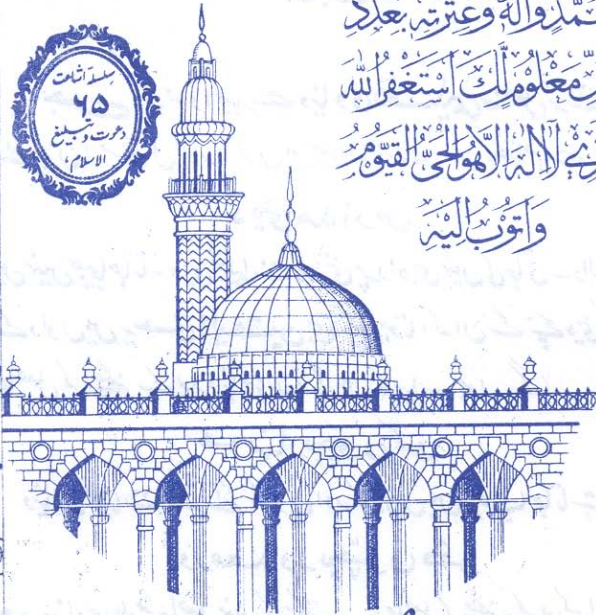 سلسلہ اشاعت
۶۵
دعوت و تبلیغ
الاسلام،
مُحَمَّدٍ وَّاٰلِهٖ وَعِتْرَتِهٖ بِعَدَدِ
مَعْلُوْمٍ لَّكَ اَسْتَغْفِرُ اللّٰهَ
لَآ اِلٰهَ اِلَّا هُوَ الْحَيُّ الْقَيُّوْمُ
وَاَتُوْبُ اِلَيْهِ